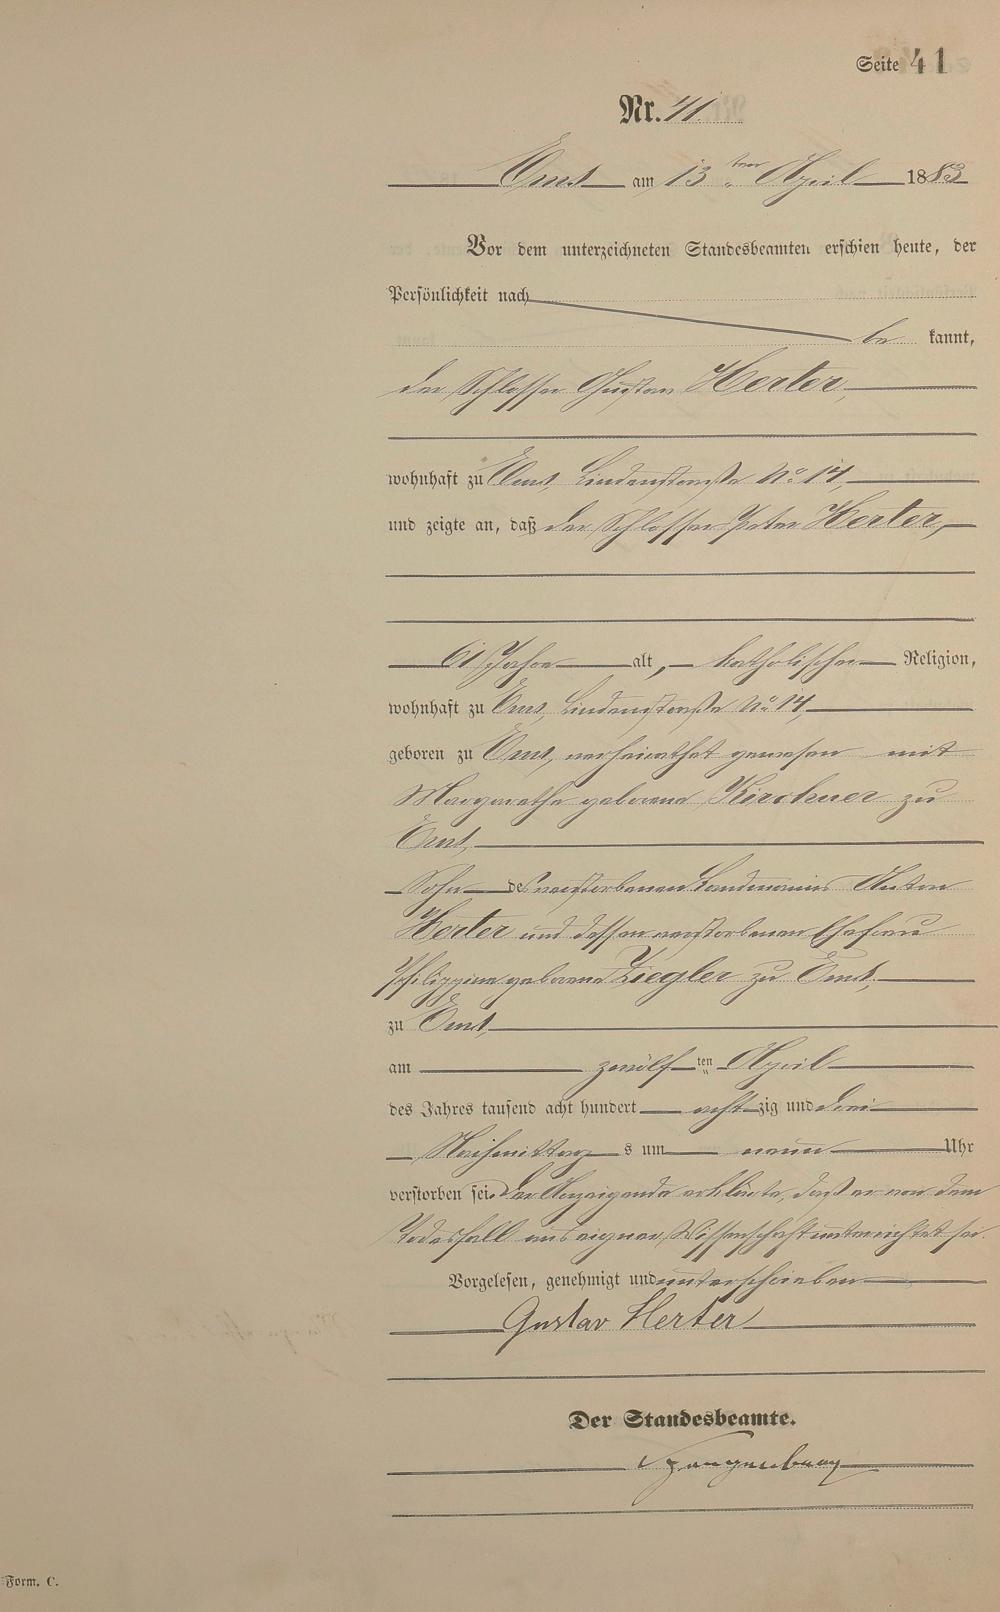 Seite 41
Nr. 41.
Ems am 13ten April 1883
Vor dem unterzeichneten Standesbeamten erschien heute, der
Persönlichkeit nach
be kannt,
der Schlosser Gustav Herter,
wohnhaft zu Ems, Lindenstraße No 14,
und zeigte an, daß der Schlosser Peter Herter,
61 Jahre alt, katholischer Religion,
wohnhaft zu Ems, Lindenstraße No 14,
geboren zu Ems, verheirathet gewesen mit
Margarethe geborene Kirchner zu
Ems,
Sohn des verstorbenen Landmanns Anton
Herter und dessen verstorbenen Ehefrau
Philippine geborene Ziegler zu Ems,
zu Ems,
am zwölf ten April
des Jahres tausend acht hundert acht zig und drei
Nachmittag s um neun Uhr
verstorben sei. Der Anzeigende erklärte, daß er von dem
Todesfall aus eigner Wissenschaft unterrichtet sei.
Vorgelesen, genehmigt und unterschrieben
Gustav Herter
Der Standesbeamte.
Form. C.